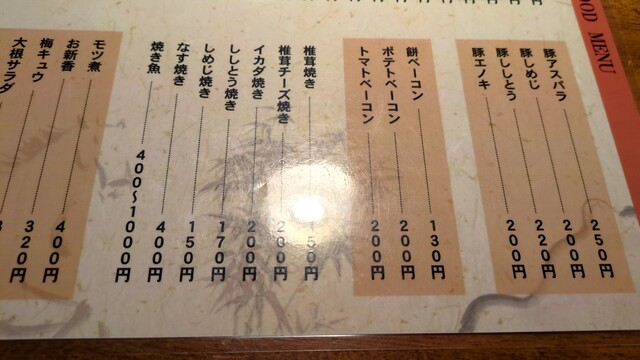 OOD MENU
豚アスパラ 250円
豚しめじ 200円
豚ししとう 220円
豚エノキ 200円
餅ベーコン 130円
ポテトベーコン 200円
トマトベーコン 200円
椎茸焼き 150円
椎茸チーズ焼き 200円
イカダ焼き 200円
ししとう焼き 170円
しめじ焼き 150円
なす焼き 400円
焼き魚 400〜1000円
モツ煮 400円
お新香 320円
梅キュウ 320円
大根サラダ